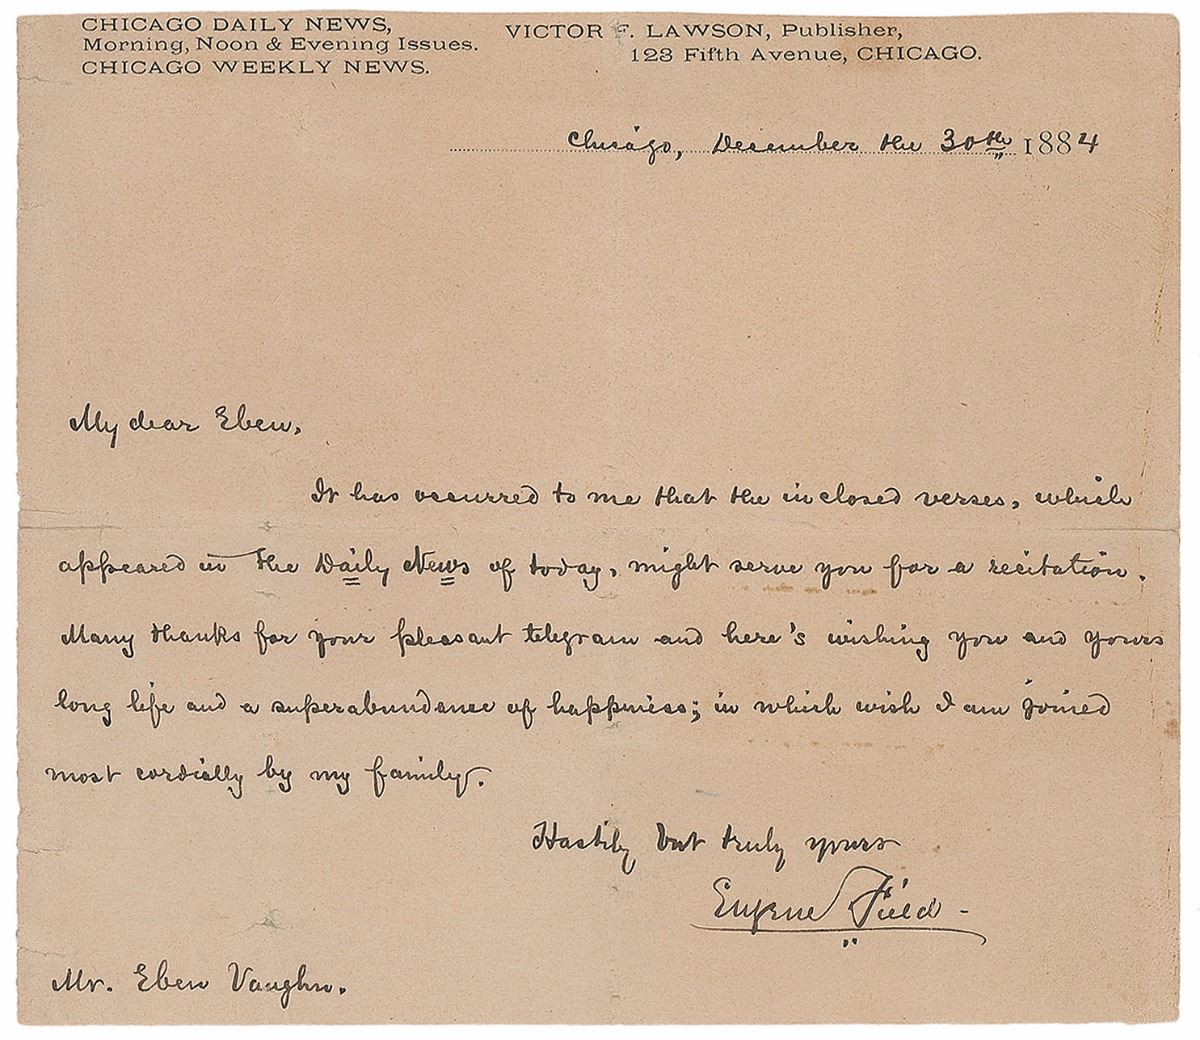 CHICAGO DAILY NEWS,
Morning, Noon & Evening Issues.
CHICAGO WEEKLY NEWS.
VICTOR F. LAWSON, Publisher,
123 Fifth Avenue, CHICAGO.
Chicago, December the 30th 1884
My dear Eben,
It has occurred to me that the inclosed verses, which
appeared in the Daily News of today, might serve you for a recitation.
Many thanks for your pleasant telegram and here's wishing you and yours
long life and a superabundance of happiness; in which wish I am joined
most cordially by my family.
Hastily but truly yours
Eugene Field -
Mr. Eben Vaughn.